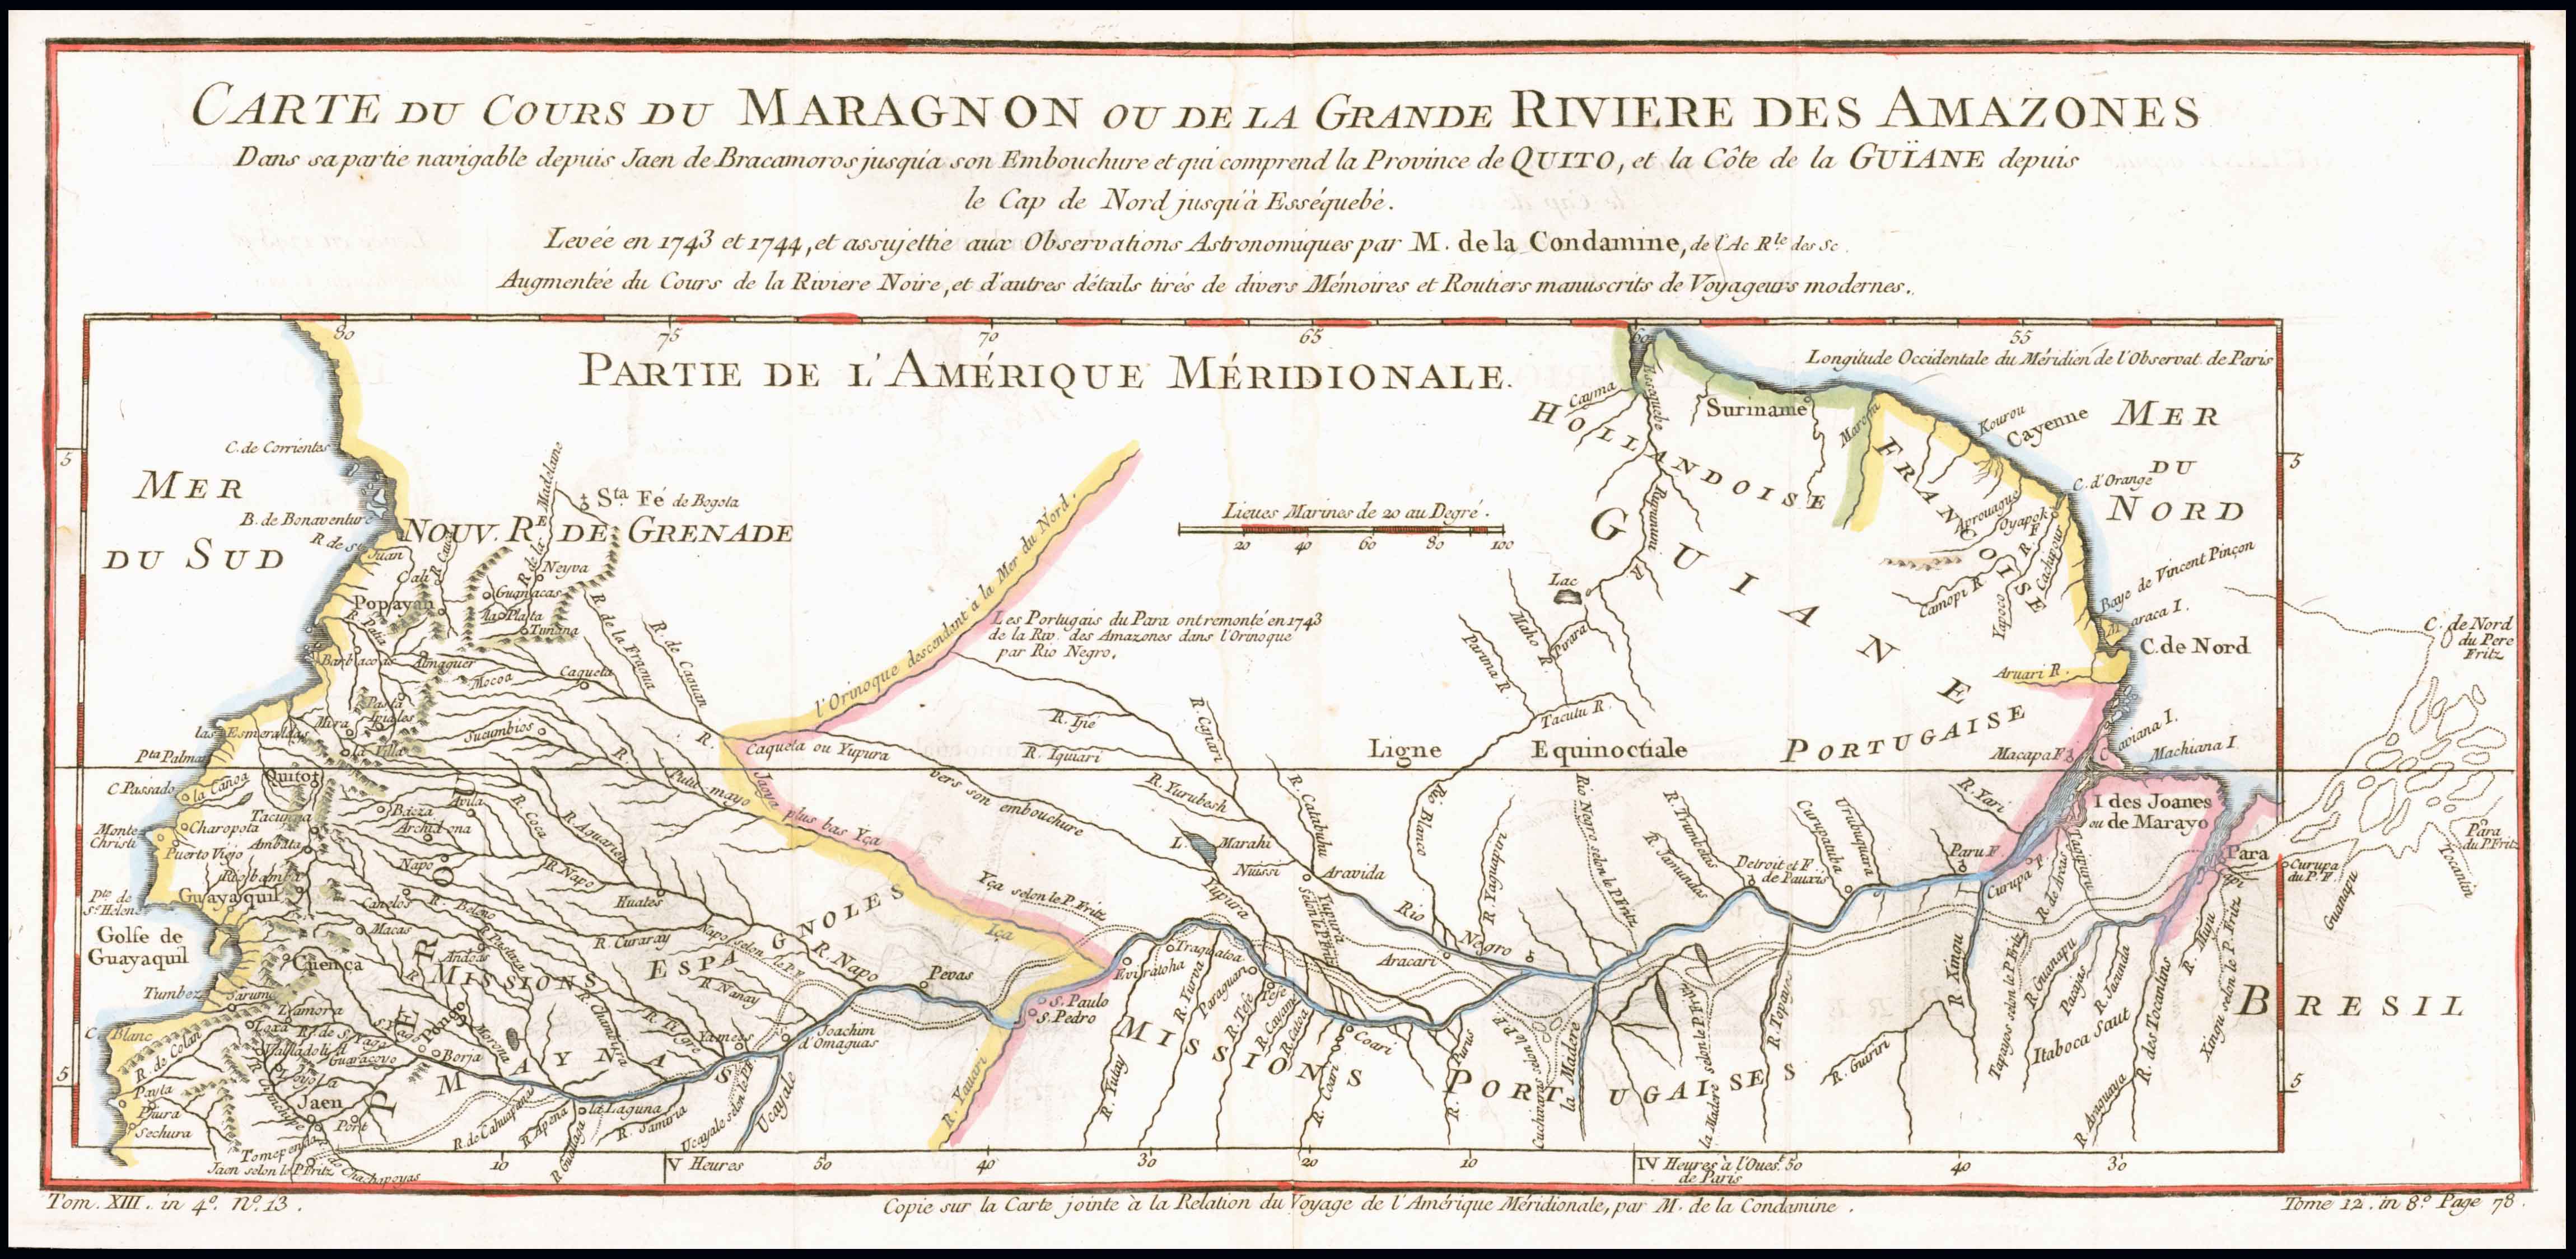 CARTE DU COURS DU MARAGNON OU DE LA GRANDE RIVIERE DES AMAZONES
Dans sa partie navigable depuis Jaen de Bracamoros jusqu'a son Embouchure et qui comprend la Province de QUITO, et la Côte de la GUÏANE depuis
le Cap de Nord jusqu'à Esséquebé.
Levée en 1743 et 1744, et assujettie aux Observations Astronomiques par M. de la Condamine, de l'Ac Rle des Sc.
Augmentée du Cours de la Riviere Noire, et d'autres détails tirés de divers Mémoires et Routiers manuscrits de Voyageurs modernes.
80
75
70
65
60
55
PARTIE DE L'AMÉRIQUE MÉRIDIONALE.
Longitude Occidentale du Méridien de l'Observat. de Paris
MER
DU SUD
MER
DU
NORD
5
5
5
5
C. de Corrientes
B. de Bonaventure
R de St. Juan
NOUV. RE. DE GRENADE
Sta. Fé de Bogota
R. de la Madelaine
R Cauca
Cali
Neyva
Guanacas
la Plata
Timana
Popayan
R. Patia
Barbacoas
Almaguer
Mocoa
Caqueta
R. de la Fragua
R. de Caouan
Pasto
Ipiales
Mira
la Villa
Sucumbios
las Esmeraldas
Pta Palmar
C Passado
la Canoa
Quito
Tacunga
Ambata
Riobamba
Baeza
Avila
Archidona
Napo
R. Coca
R. Aguarico
R Napo
Huates
Canelos
R. Beleno
Monte Christi
Charopota
Puerto Viejo
Pte de Ste Helene
Guayaquil
Golfe de
Guayaquil
Macas
Cuença
Andoas
R Pastaza
R. Curaray
Napo selon le P.F.
R. Napo
R. Nanay
R. Tigre
R. Chambira
MISSIONS
ESPAGNOLES
MAYNAS
PEROU
Tumbez
Sarumo
Zamora
Loxa
R. de S. Yago
S. Yago
Pongo
Morona
Valladolid
Guaracayo
Loyola
Borja
C. Blanc
R. de Colan
Payta
Piura
Sechura
R. Chinchipe
Jaen
Port
Tomependa
Jaen selon le P. Fritz
R. de Chachapoyas
R. de Cahuapana
R Apena
R Guallaga
la Laguna
R. Samiria
Yameos
Joachim
d'Omaguas
Ucayale selon le P.F.
Ucayale
Pevas
Lieues Marines de 20 au Degré.
20
40
60
80
100
l'Orinoque descendant a la Mer du Nord.
Les Portugais du Para ont remonté en 1743
de la Riv. des Amazones dans l'Orinoque
par Rio Negro.
R. Caqueta ou Yupura
vers son embouchure
R. Putu-mayo
Jaoya plus bas Yça
Yça selon le P. Fritz
Iça
R. Ijié
R. Iquiari
R. Yurubesh
R. Cajnari
L. Marahi
Nuissi
Yupura
Yupura selon le P. Fritz
R. Catabuhu
Aravida
Rio
Negro
Aracari
Ligne
Equinoctiale
Rio Blanco
R Yaguapiri
Rio Negro selon le P. Fritz
HOLLANDOISE
Cayma
Essequebe
Suriname
Maroni
Kourou
Cayenne
FRANÇOISE
GUIANE
PORTUGAISE
Rupununi R
Lac
Maho
Parima R.
R Pirara
Tacutu R.
Aprouague
Oyapok F
Camopi R.
Yapoco R.
Cachipour
C. d'Orange
Baye de Vincent Pinçon
Maraca I.
C. de Nord
Aruari R.
Macapa F
Caviana I.
Machiana I
I des Joanes
ou de Marayo
C. de Nord
du Pere
Fritz
Pâra
du P. Fritz
Tocantin
Curupa
du P. F.
Guanapu
Para
R. Trumbetas
R. Jamundas
Detroit et F.
de Pauxis
Curupatuba
Urubuquara
R. Yari
Paru F
Curupa F
R. de Areas
Tanipuru
R. Xingu
Tapayos selon le P. Fritz
R. Guanapu
Pacajas
R. Jacunda
Itaboca Saut
R. des Tocantins
R. Araguaya
R. Muju
Xingu selon le P. Fritz
BRESIL
R. Guiriri
R. Topayos
la Madere selon le P. Fritz
la Madere
Cuchivaras selon le P.F.
R. Purus
MISSIONS PORTUGAISES
Coari
R. Coari
R. Catoa
R. Cayame
Tefe
R. Tefe
Paraguari
R. Yurva
Traquatoa
Eviratoha
R. Yutay
S. Paulo
S. Pedro
R. Yavari
10
V Heures
50
40
30
20
10
IV Heures à l'Ouest
de Paris
50
40
30
Tom. XIII. in 4º. Nº. 13.
Copie sur la Carte jointe à la Relation du Voyage de l'Amérique Méridionale, par M. de la Condamine.
Tome 12. in 8º Page 78.